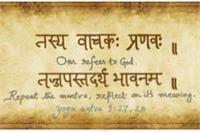 तस्य वाचकः प्रणवः ॥
Om refers to God.
तज्जपस्तदर्थ भावनम् ॥
Repeat the mantra, reflect on its meaning.
yoga sutra 1:27, 28